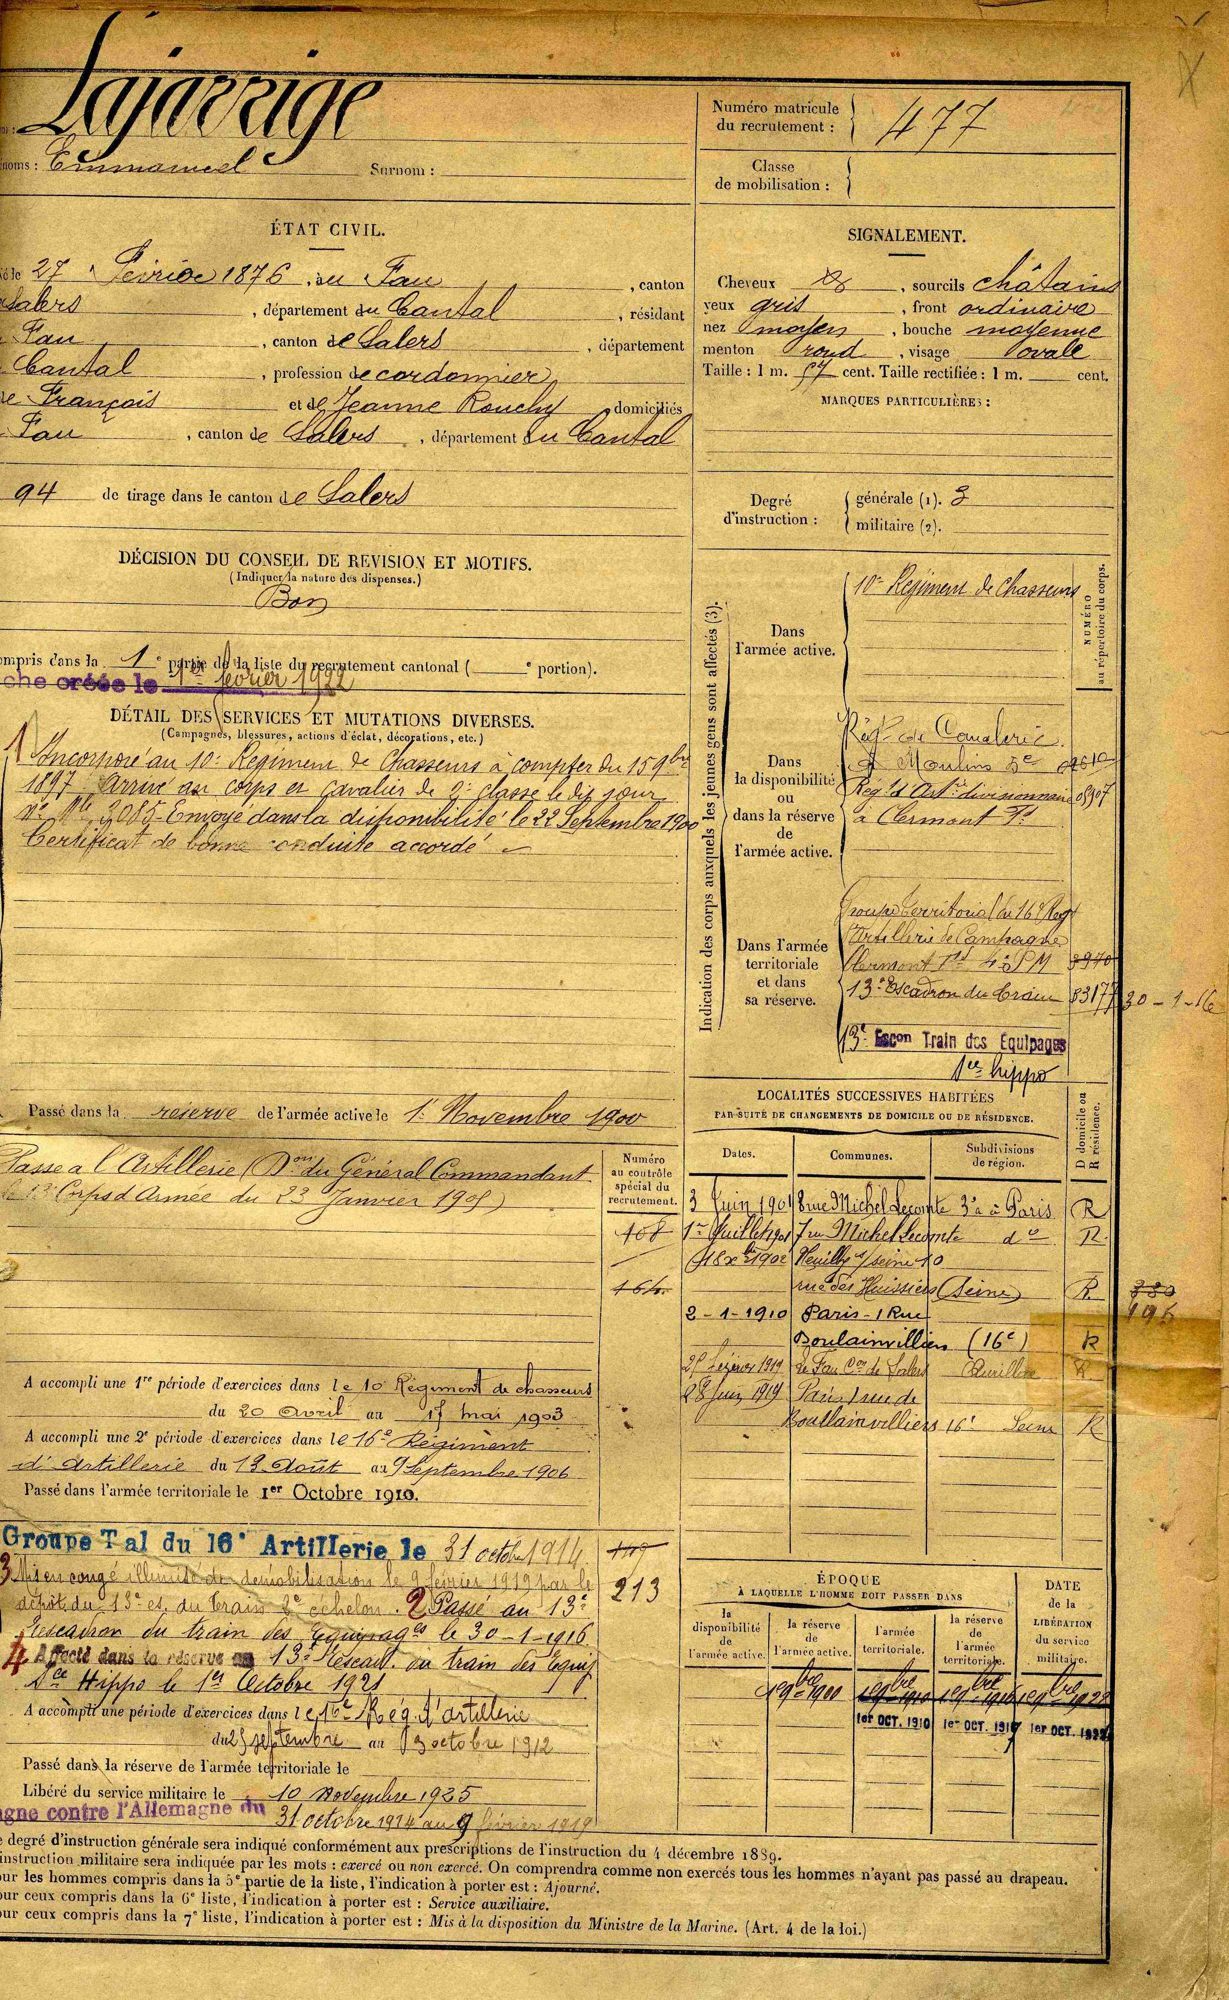 Lajarrige
noms : Emmanuel Surnom :
Numéro matricule
du recrutement : 477
Classe
de mobilisation :
ÉTAT CIVIL.
le 27 Février 1876, au Fau, canton
Salers, département du Cantal, résidant
Fau, canton de Salers, département
Cantal, profession de cordonnier
de François et de Jeanne Rouchy domiciliés
Fau, canton de Salers, département du Cantal
94 de tirage dans le canton de Salers
SIGNALEMENT.
Cheveux , sourcils châtains
yeux gris, front ordinaire
nez moyen, bouche moyenne
menton rond, visage ovale
Taille : 1 m. 57 cent. Taille rectifiée : 1 m. cent.
MARQUES PARTICULIÈRES :
Degré
d'instruction :
générale (1). 3
militaire (2).
DÉCISION DU CONSEIL DE REVISION ET MOTIFS.
(Indiquer la nature des dispenses.)
Bon
ompris dans la 1e partie de la liste du recrutement cantonal ( e portion).
che créée le 1er février 1922
DÉTAIL DES SERVICES ET MUTATIONS DIVERSES.
(Campagnes, blessures, actions d'éclat, décorations, etc.)
1 Incorporé au 10e Régiment de Chasseurs à compter du 15 9bre
1897 Arrivé au corps et cavalier de 2e classe le dit jour
No Mle 2085 - Envoyé dans la disponibilité le 22 Septembre 1900
Certificat de bonne conduite accordé
Passé dans la réserve de l'armée active le 1er Novembre 1900
Indication des corps auxquels les jeunes gens sont affectés (3).
NUMÉRO
au répertoire du corps.
Dans
l'armée active.
10e Régiment de Chasseurs
Dans
la disponibilité
ou
dans la réserve
de
l'armée active.
Rég. de Cavalerie
Moulins
Rég. d'Artie divisionnaire 08907
à Clermont Fd
Dans l'armée
territoriale
et dans
sa réserve.
Groupe territorial du 16e Reg
Artillerie de Campagne
Clermont Fd 3940
13e Escadron du Train 83177 30-1-16
13e Escon Train des Equipages
hippo
LOCALITÉS SUCCESSIVES HABITÉES
PAR SUITE DE CHANGEMENTS DE DOMICILE OU DE RÉSIDENCE.
D domicile ou
R résidence.
Dates. Communes. Subdivisions
de région.
3 Juin 1901 8 rue Michel Lecomte 3e à Paris R
1er Juillet 1901 7 rue Michel Lecomte do R
18 Xbre 1902 Neuilly s/seine 10
rue des Huissiers (Seine) R
2-1-1910 Paris - 1 Rue
Boulainvilliers (16e) R
1919 Le Fau Con de Salers Aurillac R
28 Juin 1919 Paris 1 rue de
Boullainvilliers 16e Seine R
380
196
Passé à l'Artillerie (Don du Général Commandant
le 13e Corps d'Armée du 23 Janvier 1905)
Numéro
au contrôle
spécial du
recrutement.
108
164
A accompli une 1re période d'exercices dans le 10e Régiment de chasseurs
du 20 avril au 17 mai 1903
A accompli une 2e période d'exercices dans le 16e Régiment
d'Artillerie du 13 Août au 9 Septembre 1906
Passé dans l'armée territoriale le 1er Octobre 1910.
Groupe Tal du 16e Artillerie le 31 octobre 1914
213
3 Mis en congé illimité de démobilisation le 9 février 1919 par le
dépôt du 13e es. du train 2e échelon. 2 Passé au 13e
escadron du train des Equipages le 30-1-1916
4 Affecté dans la réserve au 13e Escad. du train des Equip
Hippo le 1er Octobre 1921
A accompli une période d'exercices dans le 16e Rég. d'artillerie
du 25 septembre au 3 octobre 1912
Passé dans la réserve de l'armée territoriale le
Libéré du service militaire le 10 Novembre 1925
agne contre l'Allemagne du 31 octobre 1914 au 9 février 1919
ÉPOQUE
À LAQUELLE L'HOMME DOIT PASSER DANS
DATE
de la
LIBÉRATION
du service
militaire.
la
disponibilité
de
l'armée active.
la réserve
de
l'armée active.
l'armée
territoriale.
la réserve
de
l'armée
territoriale.
1er 9bre 1900 1er 9bre 1910 1er 9bre 1916 1er 9bre 1922
1er OCT. 1910 1er OCT. 1917 1er OCT.
e degré d'instruction générale sera indiqué conformément aux prescriptions de l'instruction du 4 décembre 1889.
instruction militaire sera indiquée par les mots : exercé ou non exercé. On comprendra comme non exercés tous les hommes n'ayant pas passé au drapeau.
our les hommes compris dans la 5e partie de la liste, l'indication à porter est : Ajourné.
our ceux compris dans la 6e liste, l'indication à porter est : Service auxiliaire.
our ceux compris dans la 7e liste, l'indication à porter est : Mis à la disposition du Ministre de la Marine. (Art. 4 de la loi.)